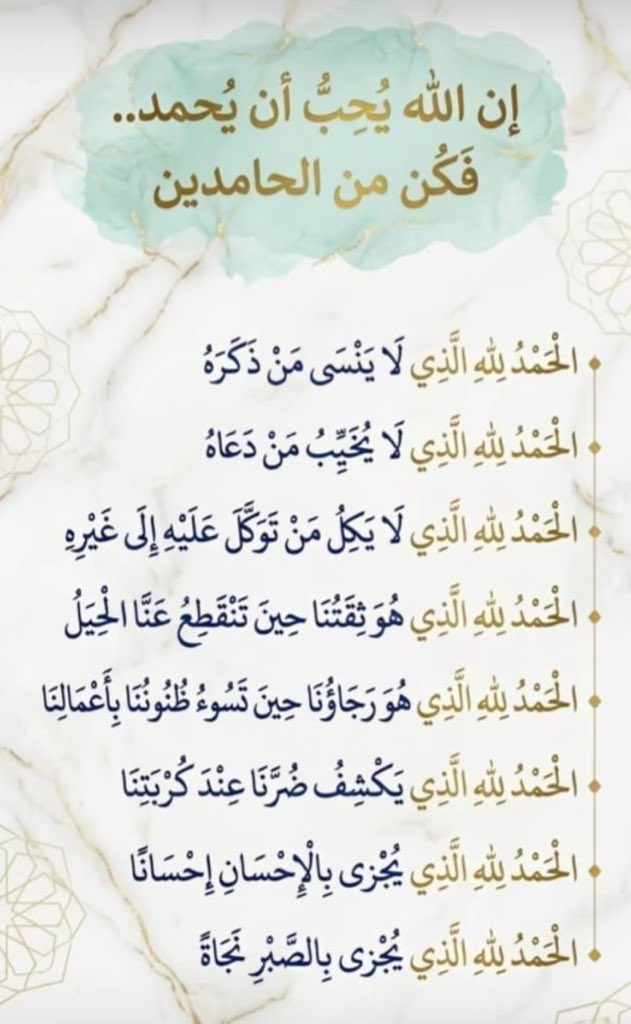 إن الله يُحِبُّ أن يُحمد..
فَكُن من الحامدين
الْحَمْدُ لِلهِ الَّذِي لَا يَنْسَى مَنْ ذَكَرَهُ
الْحَمْدُ لِلهِ الَّذِي لَا يُخَيِّبُ مَنْ دَعَاهُ
الْحَمْدُ لِلهِ الَّذِي لَا يَكِلُ مَنْ تَوَكَّلَ عَلَيْهِ إِلَى غَيْرِهِ
الْحَمْدُ لِلهِ الَّذِي هُوَ ثِقَتُنَا حِينَ تَنْقَطِعُ عَنَّا الْحِيَلُ
الْحَمْدُ لِلهِ الَّذِي هُوَ رَجَاؤُنَا حِينَ تَسُوءُ ظُنُونُنَا بِأَعْمَالِنَا
الْحَمْدُ لِلهِ الَّذِي يَكْشِفُ ضُرَّنَا عِنْدَ كُرْبَتِنَا
الْحَمْدُ لِلهِ الَّذِي يُجْزى بِالْإِحْسَانِ إِحْسَانًا
الْحَمْدُ لِلهِ الَّذِي يُجْزى بِالصَّبْرِ نَجَاةً